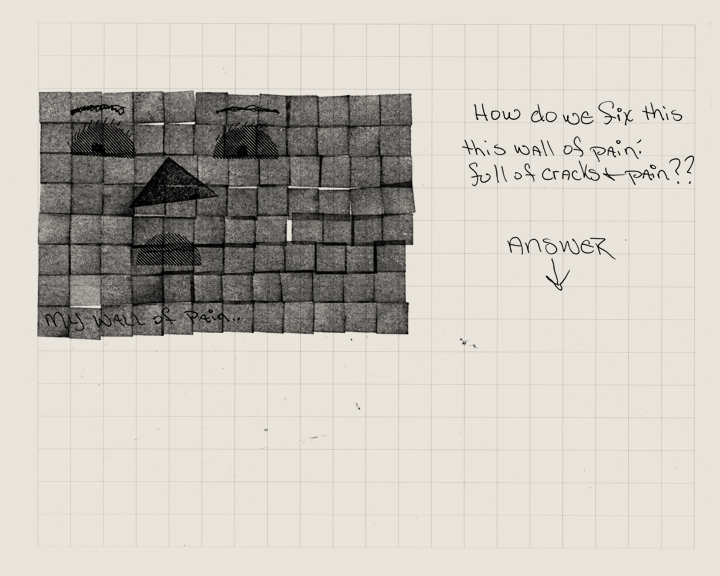 My WALL of PaiN..
How do we fix this
this wall of pain:
full of cracks + pain??
ANSWER